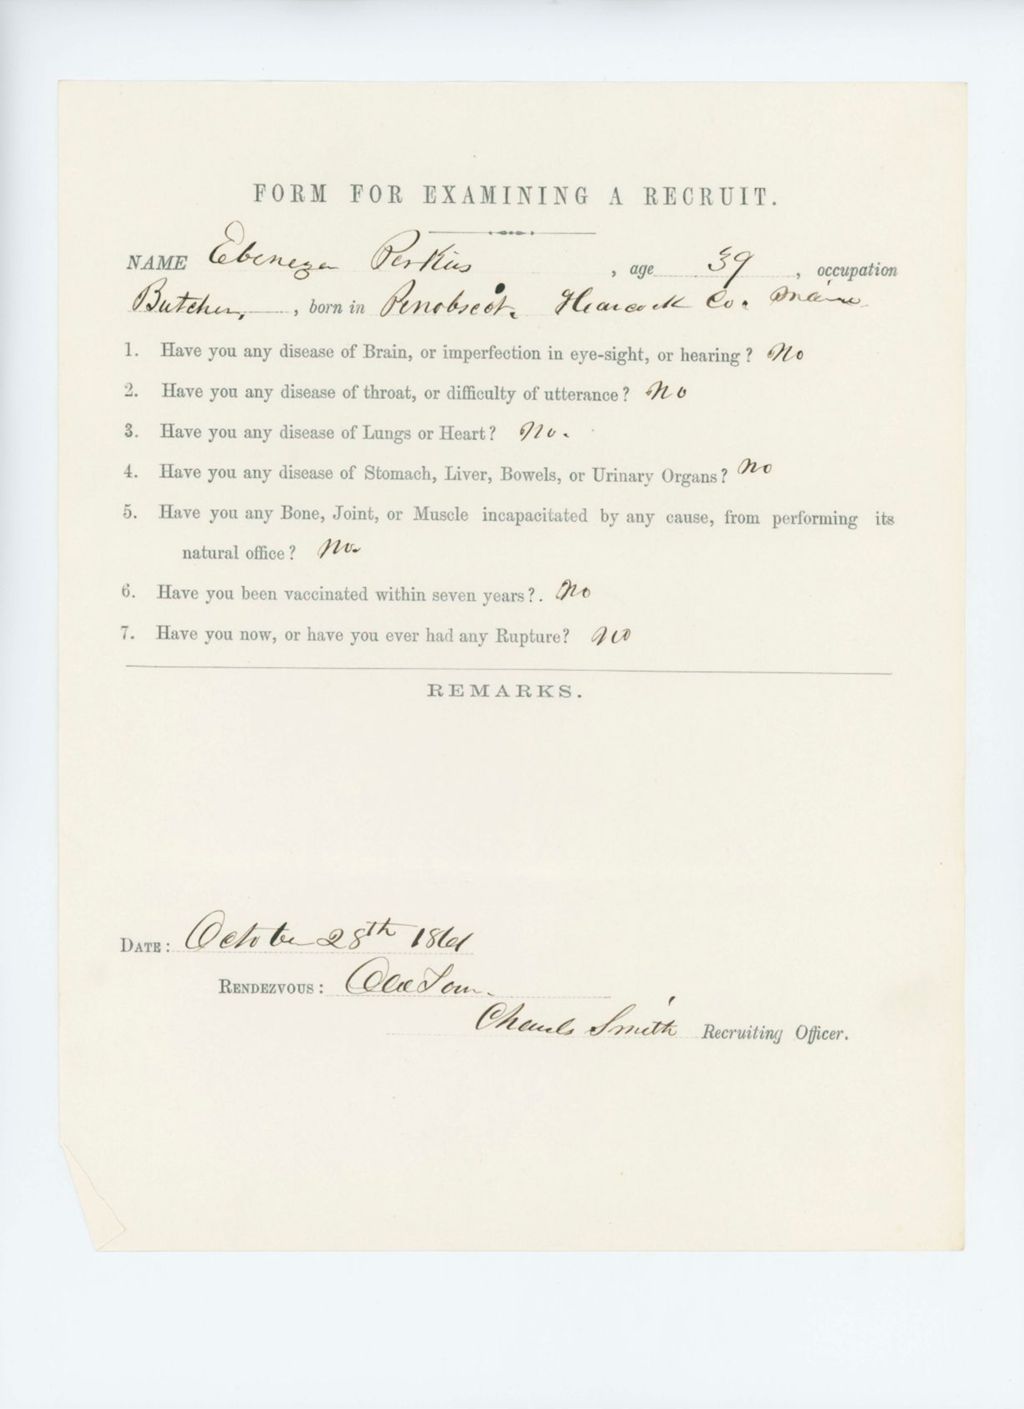 FORM FOR EXAMINING A RECRUIT.
NAME Ebenezer Perkins, age 39, occupation
Butcher, born in Penobscot, Hancock Co. Maine
1. Have you any disease of Brain, or imperfection in eye-sight, or hearing? No
2. Have you any disease of throat, or difficulty of utterance? No
3. Have you any disease of Lungs or Heart? No.
4. Have you any disease of Stomach, Liver, Bowels, or Urinary Organs? No
5. Have you any Bone, Joint, or Muscle incapacitated by any cause, from performing its
natural office? No.
6. Have you been vaccinated within seven years?. No
7. Have you now, or have you ever had any Rupture? No
REMARKS.
DATE: October 28th 1861
RENDEZVOUS: Old Town.
Charles Smith Recruiting Officer.